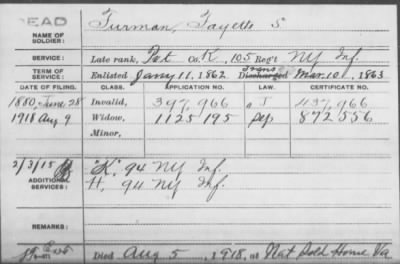 DEAD
NAME OF SOLDIER: Furman, Fayette S
SERVICE: Late rank, Pvt Co. K, 105 Reg't NY Inf.
TERM OF SERVICE: Enlisted Jany 11, 1862 Trans Discharged Mar. 10, 1863
DATE OF FILING. CLASS. APPLICATION NO. LAW. CERTIFICATE NO.
1880 June 28 Invalid, 397,966 J 437,966
1918 Aug 9 Widow, 1125195 Sep. 872556
Minor,
2/3/15 "K" 94 NY Inf.
ADDITIONAL SERVICES: H, 94 NY Inf.
REMARKS:
Died Aug 5, 1918, at Nat Sold Home Va